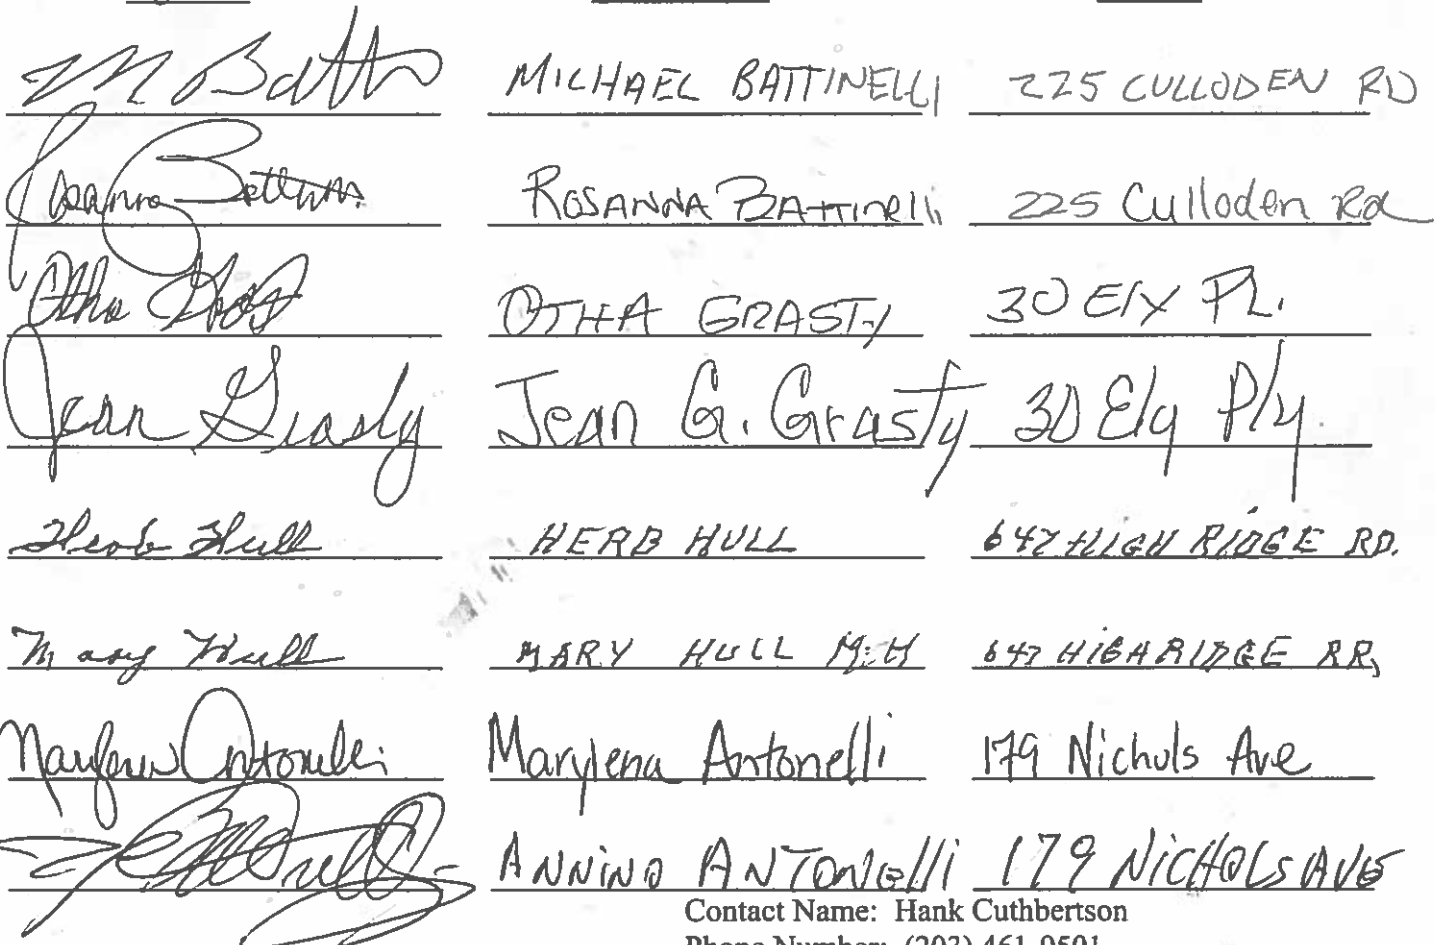 M Batt MICHAEL BATTINELLI 225 CULLODEN RD
Rosanna ROSANNA BATTINELLI 225 Culloden Rd
Otha OTHA GRASTY 30 Ely PL.
Jean Grasty Jean G. Grasty 30 Ely Ply.
Herb Hull HERB HULL 647 HIGH RIDGE RD.
Mary Hull MARY HULL M.H 647 HIGH RIDGE RR,
Marylena Antonelli Marylena Antonelli 179 Nichols Ave
ANNINO ANTONElli 179 NICHOLS AVE
Contact Name: Hank Cuthbertson
Phone Number: (203) 461-9501